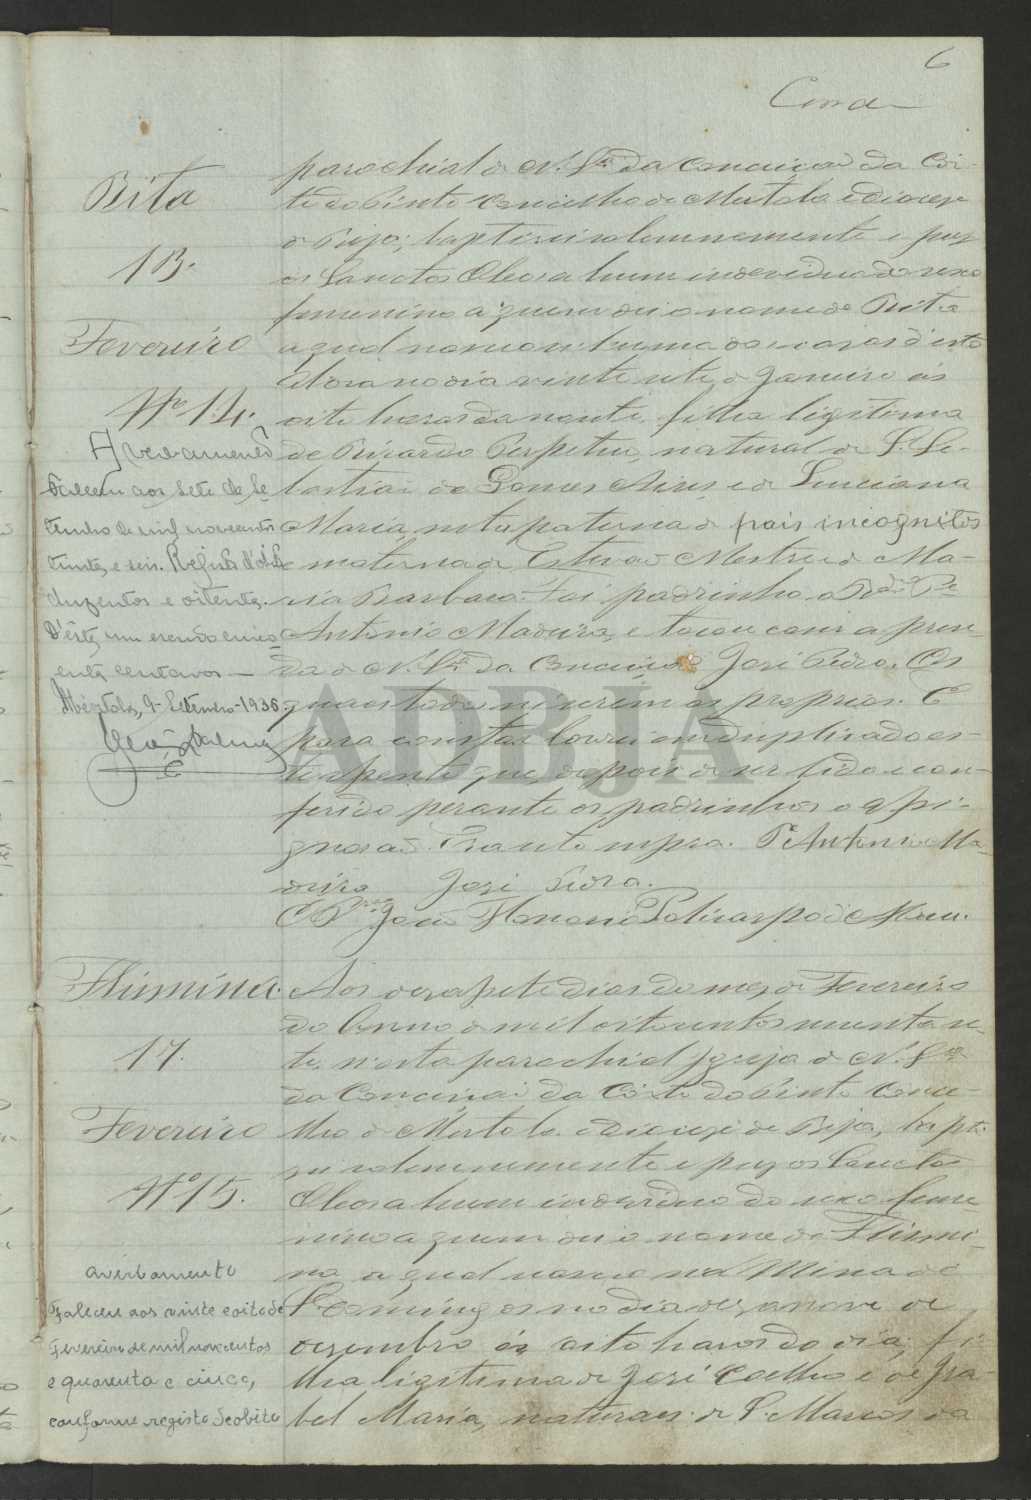 6
Conda
Rita
13.
Fevereiro
Nº 14.
Averbamento
Faleceu aos sete de Se
tembro de mil novecentos
trinta e seis. Registo d'obito
duzentos e oitenta.
D'êste, um escudo e cinco
enta centavos —
Mértola, 9-Setembro-1936.
parochial de N. Srª da Conceição da Cor-
te do Pinto concelho de Mertola e Diocese
de Beja; baptisei solemnemente e puz
os Sanctos Oleos a hum individuo do sexo
femenino a quem dei o nome de Rita
a qual nasceu n'huma das casas d'esta
Aldea no dia vinte sete de Janeiro ás
oito horas da noute, filha ligitima
de Ricardo Perpetuo, natural de S. Se-
bastião de Gomes Aires e de Luciana
Maria, neta paterna de pais incognitos
e materna de Estevão Mestre e de Ma-
ria Barbara. Foi padrinho o Rdo Pe
Antonio Madeira, e tocou com a pren-
da de N. Srª da Conceição José Pedro. Os
quaes todos sei serem os proprios. E
para constar lavrei em duplicado es-
te assento que, depois de ser lido e con-
ferido perante os padrinhos o assi-
gnarão. Era ut supra. Pe Antonio Ma-
deira José Pedro.
O Pror João Florencio Policarpo de
Flismina.
17.
Fevereiro
Nº 15.
averbamento
Faleceu aos vinte e oito de
Fevereiro de mil novecentos
e quarenta e cinco,
conforme registo de obito
Aos dezasete dias do mez de Fevereiro
do Anno de mil oitocentos noventa se-
te, n'esta parochial Igreja de N. Srª
da Conceição da Corte do Pinto conce-
lho de Mertola e Diocese de Beja, bapti
zei solemnemente e puz os Sanctos
Oleos a hum individuo do sexo feme
nino a quem dei o nome de Flismi-
na a qual nasceu na Mina de
S. Domingos no dia dezanove de
dezembro ás oito horas do dia, fi-
lha ligitima de José Coelho e de Iza
bel Maria, naturaes de S. Marcos da
ADBJA